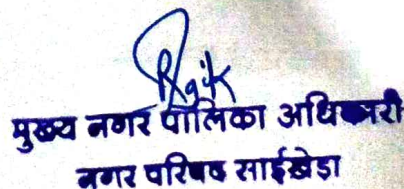 मुख्य नगर पालिका अधिकारी
नगर परिषद साईखेड़ा